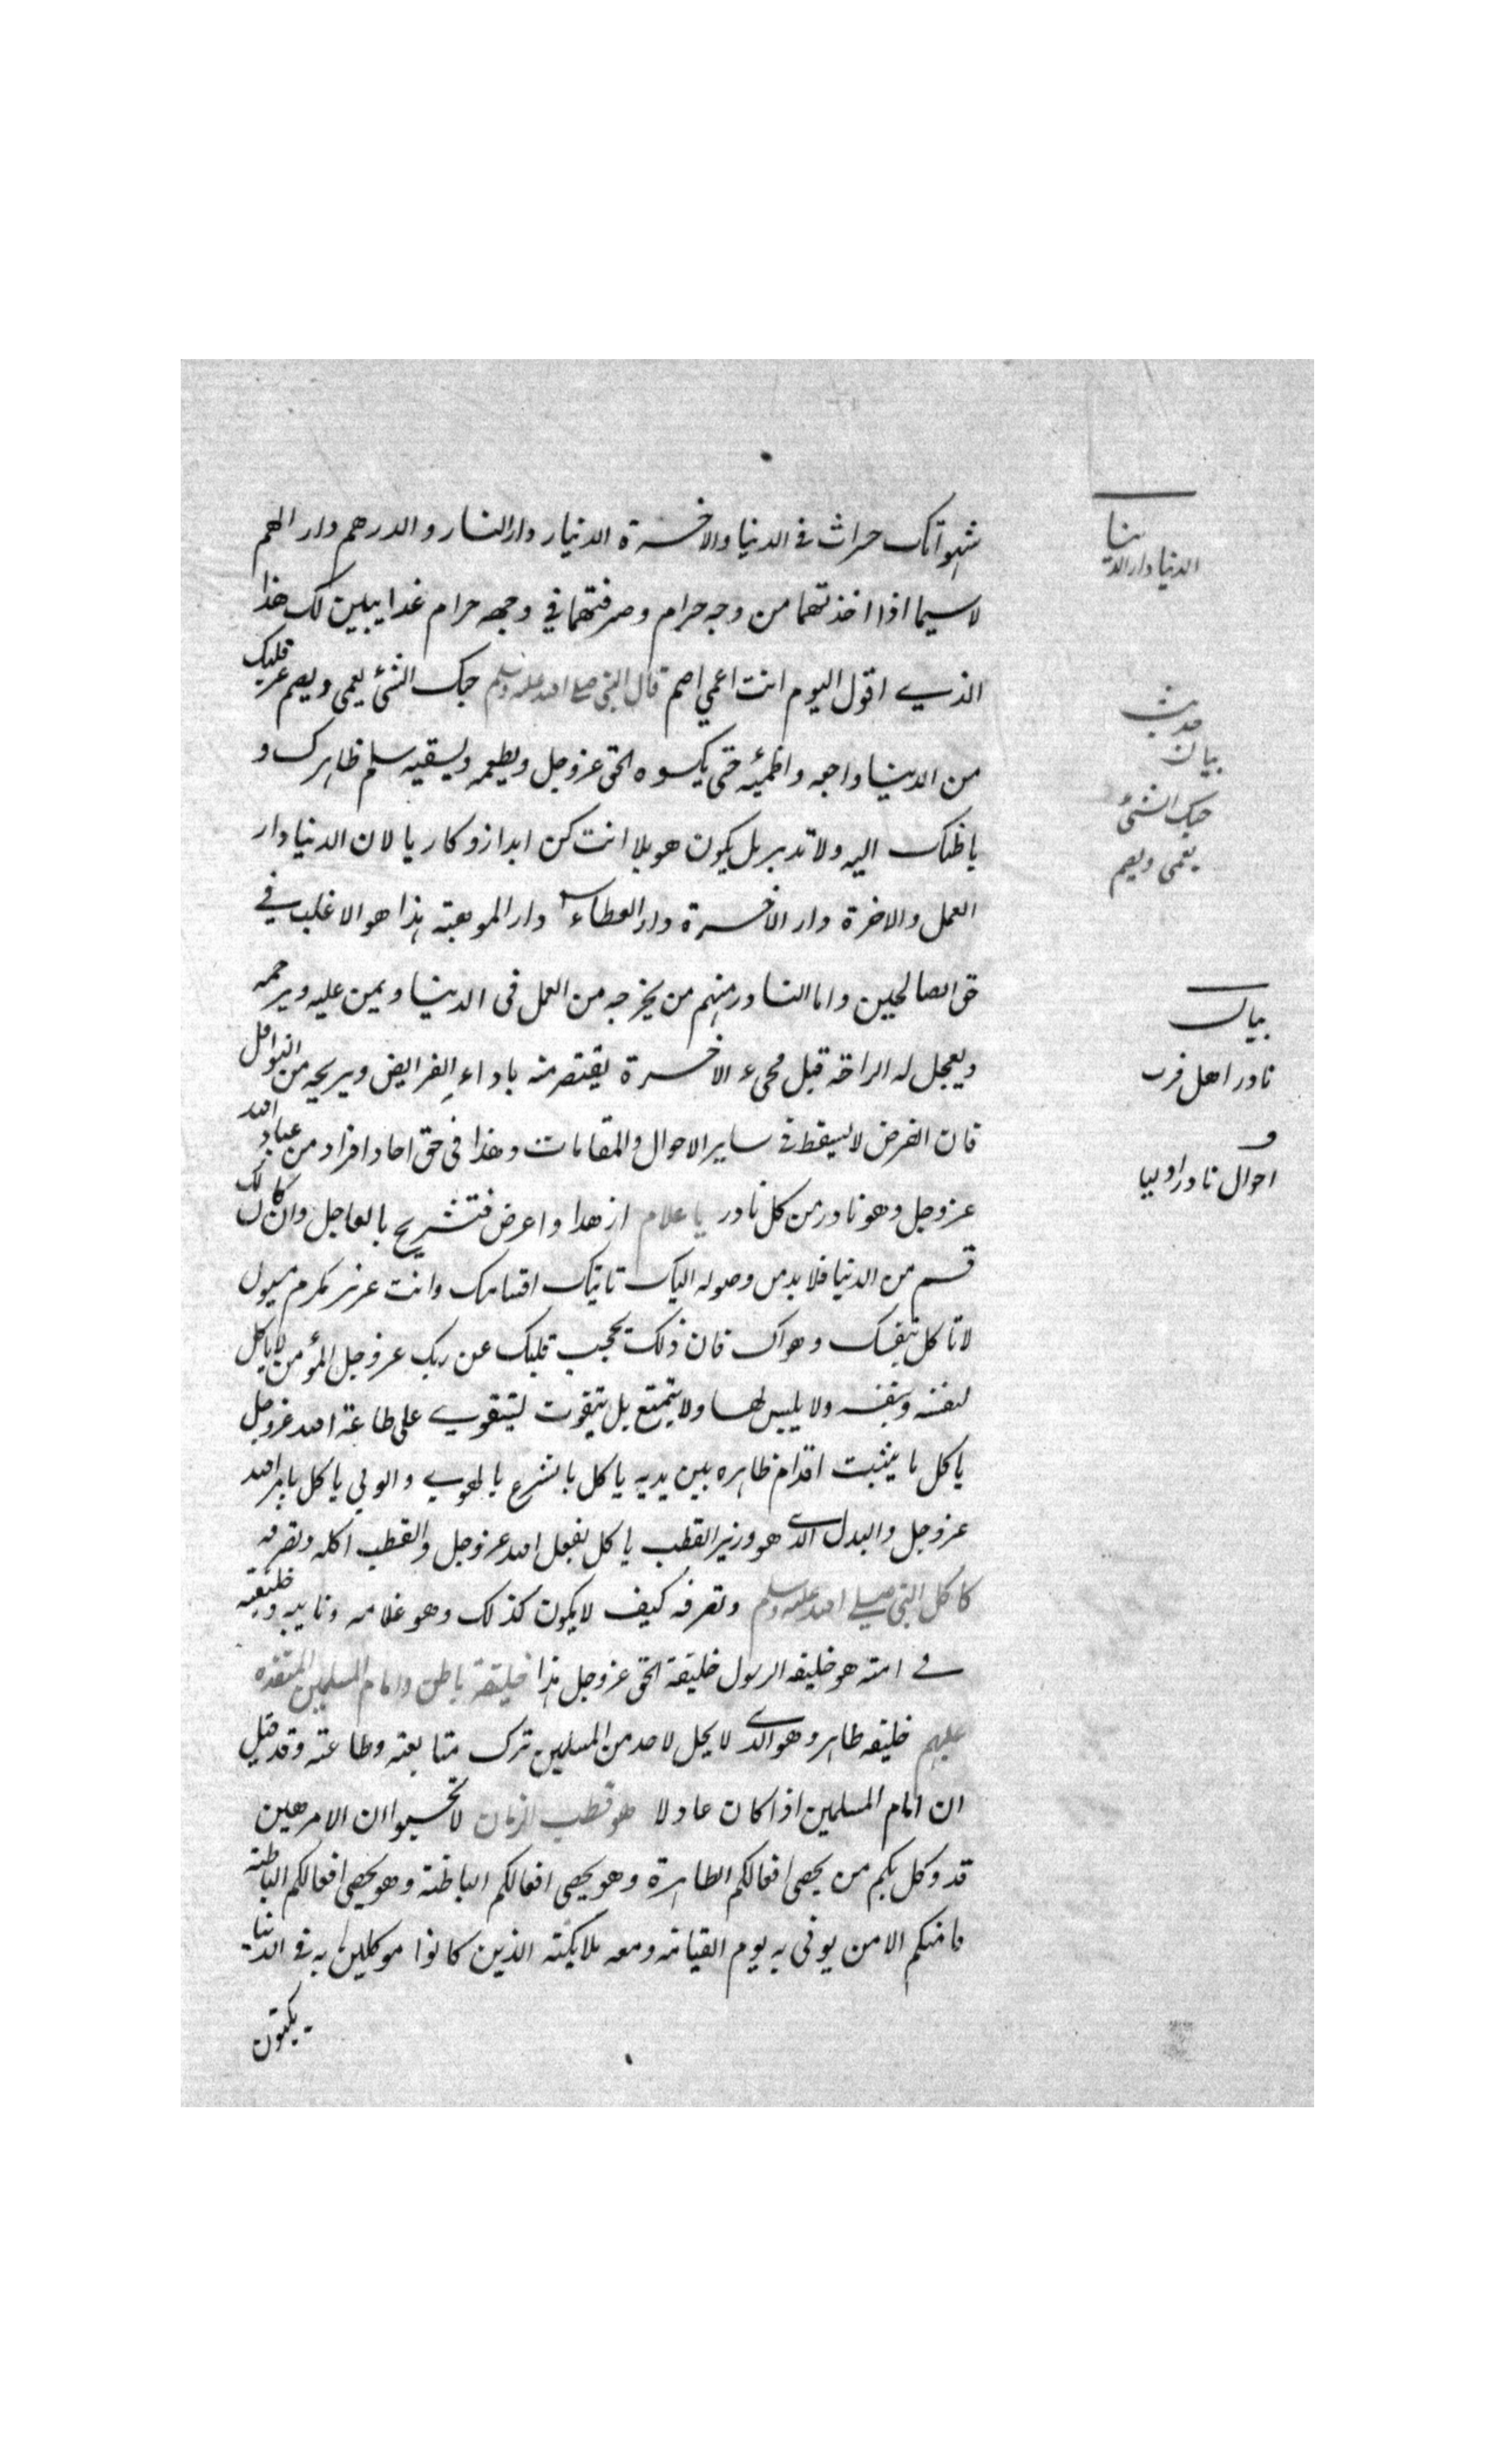 شهواتك حراث في الدنيا والاخرة الدنيار دار النار والدرهم دار الهم
لاسيما اذا اخذتهما من وجه حرام وصرفتهما في وجهه حرام غدا يبين لك هذا
الذي اقول اليوم انت اعمي اصم قال النبي صلى الله عليه وسلم حبك الشئ يعمى ويصم عر قلبك
من الدنيا واجعه واظمئه حتى يكسوه الحق عزوجل ويطعمه ويسقيه سلم ظاهرك و
باطنك اليه ولا تدبر بل يكون هو بلا انت كن ابدا زوكاريا لان الدنيا دار
العمل والاخرة دار الاخرة دار العطاء دار الموهبة هذا هو الاغلب في
حق الصالحين واما النادر منهم من يخرجه من العمل فى الدنيا ويمن عليه ويرحمه
ويعجل له الراحة قبل مجىء الاخرة يقتصر منه باداء الفرايض ويريحه من النوافل
فان الفرض لا يسقط في ساير الاحوال والمقامات وهذا فى حق احاد افراد من عباد الله
عزوجل وهو نادر من كل نادر يا غلام ازهدا واعرض فتشريح بالعاجل وان كان لك
قسم من الدنيا فلا بد من وصوله اليك تاتيك اقسامك وانت عزيز مكرم
لا تاكل بنفسك وهواك فان ذلك يحجب قلبك عن ربك عزوجل المؤمن لاياكل
لنفسه وبنفسه ولا يلبس لها ولا يتمتع بل يتقوت ليتقوي على طاعة الله عزوجل
ياكل ما يثبت اقدام ظاهره بين يديه ياكل بالشرع بالهوي والولي ياكل بامر الله
عزوجل والبدل الذى هو وزير القطب ياكل بفعل الله عزوجل والقطب اكله وتصرفه
كاكل النبي صلى الله عليه وسلم وتصرفه كيف لا يكون كذلك وهو غلامه ونايبه وخليفته
في امته هو خليفه الرسول خليفة الحق عزوجل هذا خليفة باطن وامام المسلمين المتقدم
عليهم خليفه ظاهر وهو الذى لا يحل لاحد من المسلمين ترك متابعته وطاعته وقد قيل
ان امام المسلمين اذا كان عادلا هو قطب الزمان لا تحسبوا ان الامر هين
قد وكل بكم من يحصى افعالكم الظاهرة وهو يحصى افعالكم الباطنة وهو يحصى افعالكم الباطنة
ما منكم الا من يوفى به يوم القيامة ومعه ملايكته الذين كانوا موكلين به في الدنيا
يكتبون
الدنيا دار الد ينا
حديث
بيان
حبك الشئ
يعمى ويصم
بيان
نادر اهل قرب
و
احوال نادر اوليا